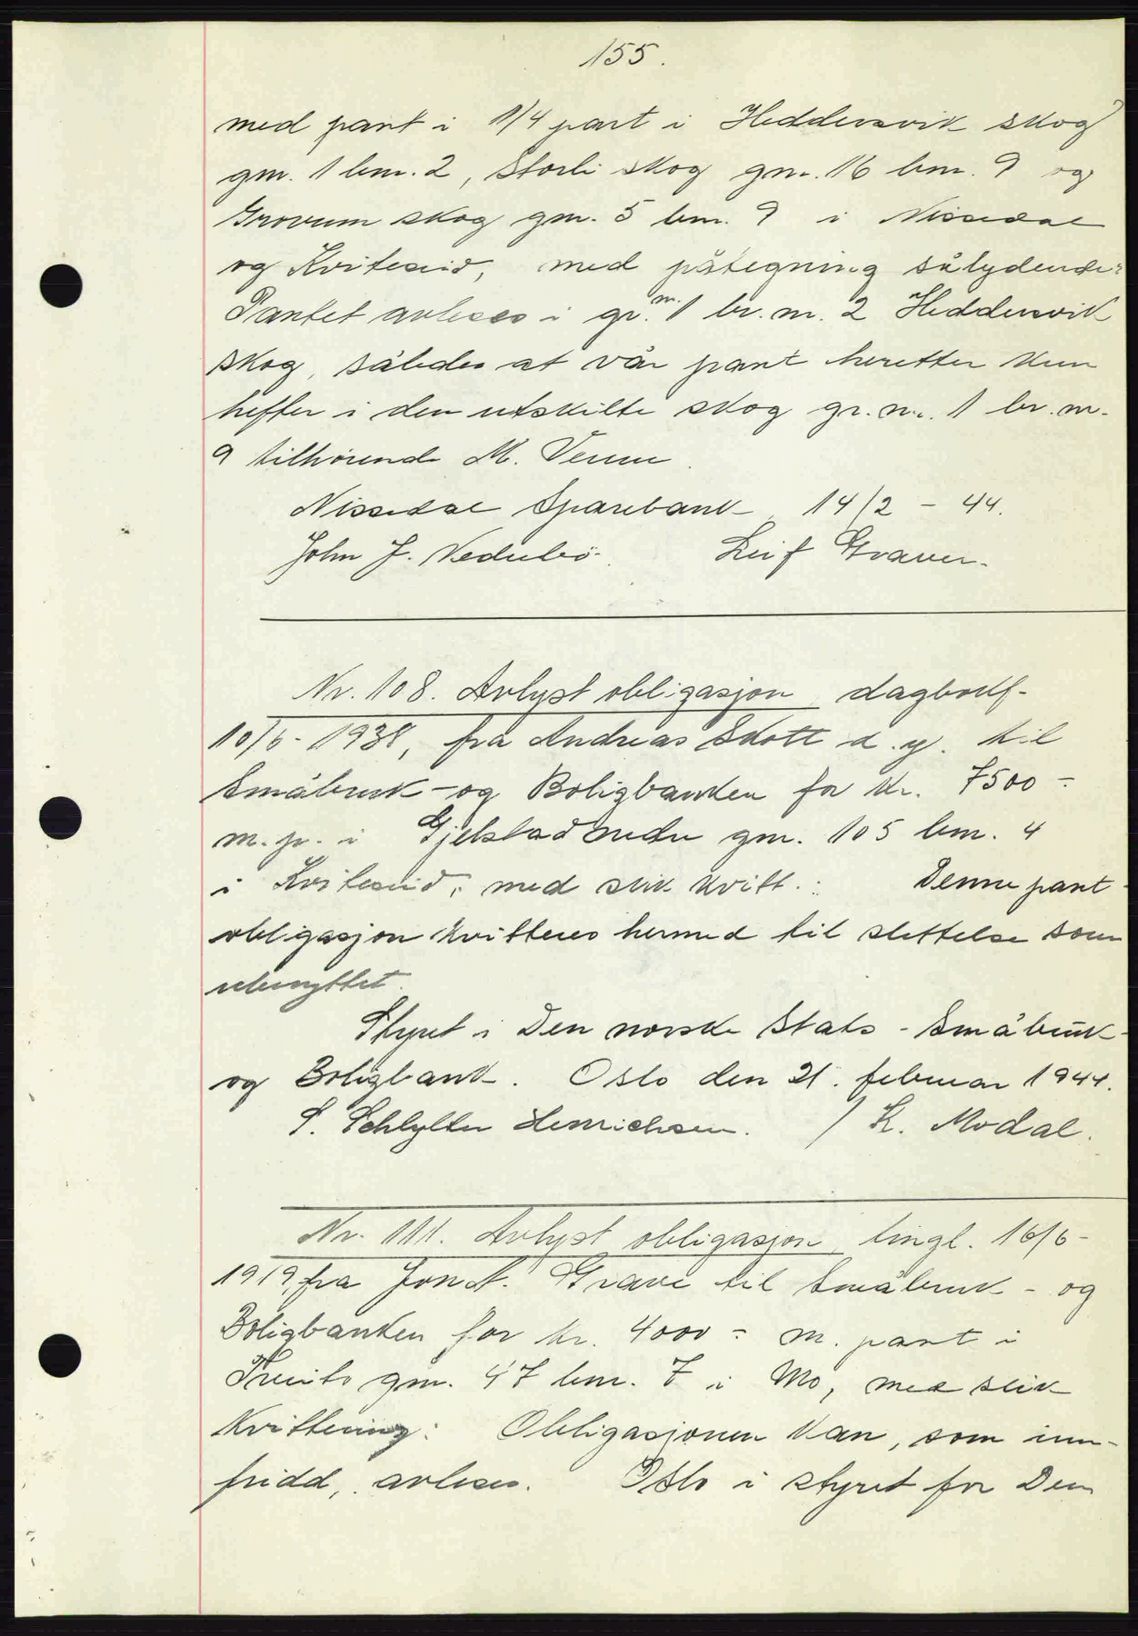 155.
med pant i 1/4 part i Heddersvik skog
gnr. 1 bnr. 2, Storli skog gnr. 16 bnr. 9 og
Grovum skog gnr. 5 bnr. 9 i Nissedal
og Kviteseid, med påtegning sålydende:
Pantet avleses i gr.nr. 1 br.nr. 2 Heddersvik
skog, således at vår pant heretter kun
hefter i den utskilte skog gr.nr. 1 br.nr.
9 tilhørende M. Venne.
Nissedal Sparebank 14/2 - 44.
John J. Vedulbø. Leif Graver.
Nr. 108. Avlyst obligasjon dagbokf.
10/6- 1938, fra Andreas Skott d.y. til
Småbruk- og Boligbanken for kr. 7500 -
m. p. i Gjelstad nedre gnr. 105 bnr. 4
i Kviteseid, med slik kvitt.: Denne pant-
obligasjon kvitteres hermed til slettelse som
ubenyttet.
Styret i Den norske Stats - Småbruk-
og Boligbank. Oslo den 21. februar 1944.
S. Schlytter Henrichsen. / K. Modal.
Nr. 111. Avlyst obligasjon tingl. 16/6-
1919, fra Jon A. Grave til Småbruk - og
Boligbanken for kr. 4000 - m. pant i
gnr. 47 bnr. 7 i Mo, med slik
kvittering: Obligasjonen kan, som inn-
fridd, avleses. Oslo i styret for Den